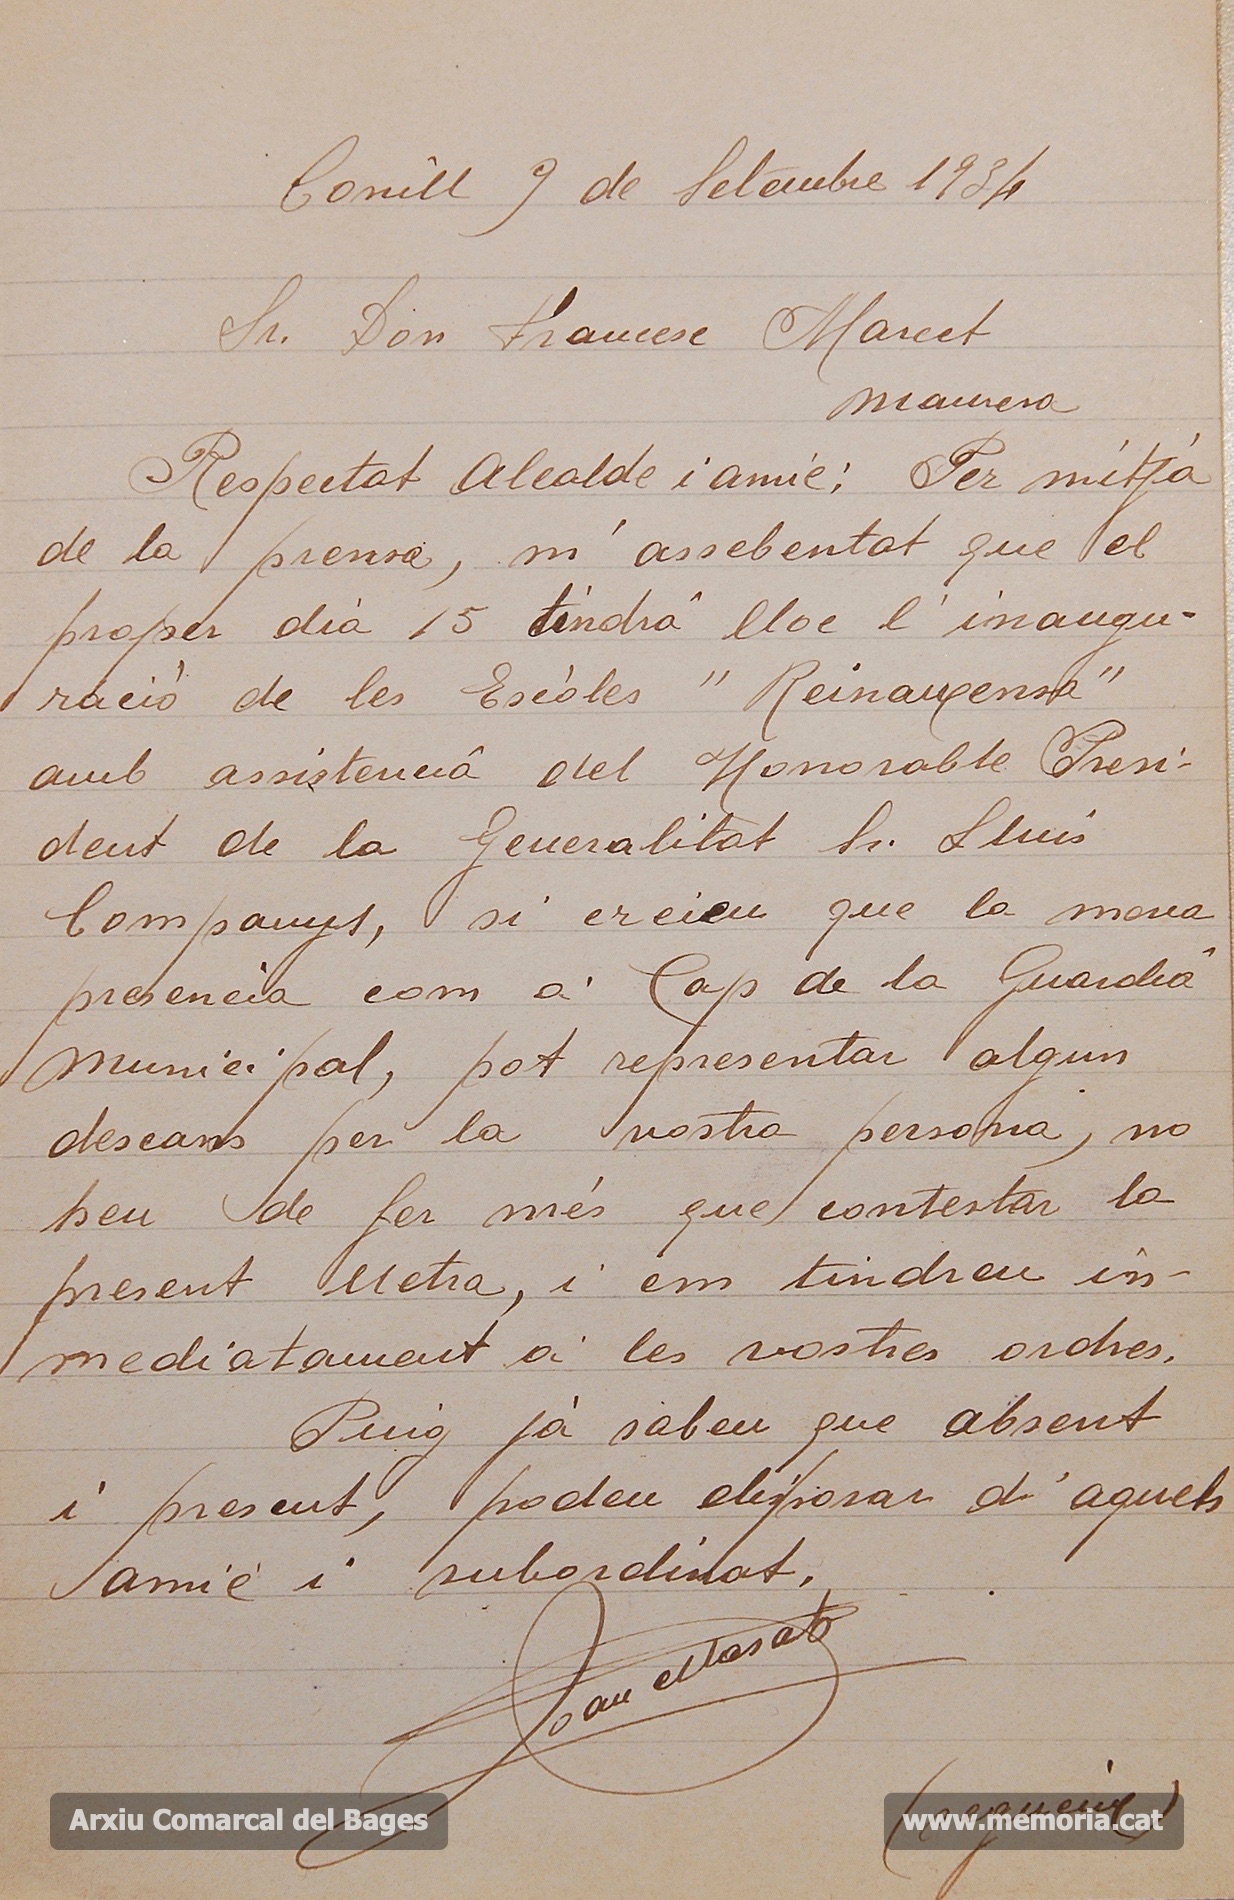 Conill 9 de Setembre 1934
Sr. Don Francesc Marcet
Manresa
Respectat Alcalde i amic: Per mitjà
de la prensa, m'assebentat que el
proper dia 15 tindrâ lloc l'inaugu-
ració de les Escòles "Reinaxensa"
amb assistencia del Honorable Presi-
dent de la Generalitat Sr. Lluis
Companys, si creieu que la meva
presencia com a Cap de la Guardia
Municipal, pot representar algun
descans per la vostra persona, no
heu de fer més que contestar la
present lletra, i em tindreu in-
mediatament a les vostres ordres.
Puig jà sabeu que absent
i present, podeu disposar d'aquets
amic i subordinat.
Joan Masats
(segueix)
Arxiu Comarcal del Bages
www.memoria.cat